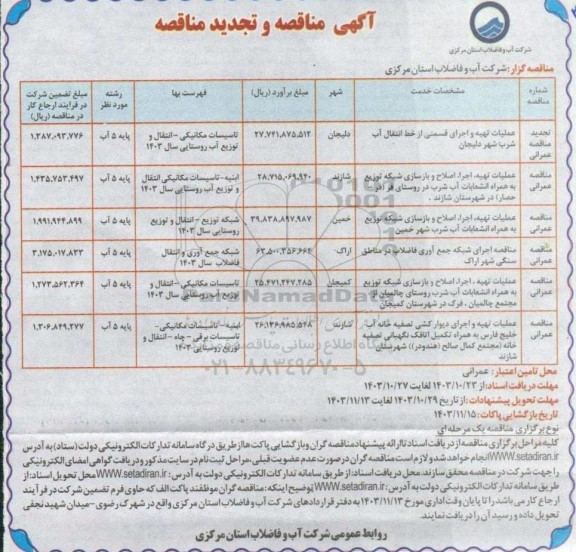 آگهی مناقصه و تجدید مناقصه
شرکت آب و فاضلاب استان مرکزی
مناقصه گزار: شرکت آب و فاضلاب استان مرکزی
شماره مناقصه | مشخصات خدمت | شهر | مبلغ برآورد (ریال) | فهرست بها | رشته مورد نظر | مبلغ تضمین شرکت در فرایند ارجاع کار در مناقصه (ریال)
تجدید مناقصه عمرانی | عملیات تهیه و اجرای قسمتی از خط انتقال آب شرب شهر دلیجان | دلیجان | ۲۷.۷۴۱,۸۷۵,۵۱۲ | تاسیسات مکانیکی – انتقال و توزیع آب روستایی سال ۱۴۰۳ | پایه ۵ آب | ۱,۳۸۷,۰۹۳,۷۷۶
مناقصه عمرانی | عملیات تهیه، اجرا، اصلاح و بازسازی شبکه توزیع به همراه انشعابات آب شرب در روستای قر (در حصار) در شهرستان شازند . | شازند | ۲۸,۷۱۵,۰۶۹,۹۴۰ | ابنیه – تاسیسات مکانیکی انتقال و توزیع آب روستایی سال ۱۴۰۳ | پایه ۵ آب | ۱,۴۳۵,۷۵۳,۴۹۷
مناقصه عمرانی | عملیات تهیه، اجرا، اصلاح و بازسازی شبکه توزیع به همراه انشعابات آب شرب شهر خمین | خمین | ۳۹,۸۳۸,۸۹۷,۹۸۷ | شبکه توزیع – انتقال و توزیع روستایی سال ۱۴۰۳ | پایه ۵ آب | ۱,۹۹۱,۹۴۴,۸۹۹
مناقصه عمرانی | مناقصه اجرای شبکه جمع آوری فاضلاب در مناطق سنگی شهر اراک | اراک | ۶۳,۵۰۰,۳۵۶,۶۶۴ | شبکه جمع آوری و انتقال فاضلاب سال ۱۴۰۳ | پایه ۵ آب | ۳,۱۷۵,۰۱۷,۸۳۳
مناقصه عمرانی | عملیات تهیه، اجرا، اصلاح و بازسازی شبکه توزیع به همراه انشعابات آب شرب روستای چالمیان از مجتمع چالمیان ، فرک در شهرستان کمیجان | کمیجان | ۲۵,۴۷۱,۲۴۷,۲۸۵ | تاسیسات مکانیکی – انتقال و توزیع آب روستایی سال ۱۴۰۳ | پایه ۵ آب | ۱,۲۷۳,۵۶۲,۳۶۴
مناقصه عمرانی | عملیات تهیه و اجرای دیوار کشی تصفیه خانه آب خلیج فارس به همراه تکمیل اتاقک نگهبانی تصفیه خانه (مجتمع کمال صالح (هندودر)) شهرستان شازند | شازند | ۲۶,۱۳۶,۹۸۵,۵۴۸ | ابنیه – تاسیسات مکانیکی – تاسیسات برقی – چاه – انتقال و توزیع روستایی ۱۴۰۳ | پایه ۵ آب | ۱,۳۰۶,۸۴۹,۲۷۷
محل تامین اعتبار : عمرانی
مهلت دریافت اسناد: از ۱۴۰۳/۱۰/۲۳ لغایت ۱۴۰۳/۱۰/۲۷
مهلت تحویل پیشنهادات : از تاریخ ۱۴۰۳/۱۰/۲۹ لغایت ۱۴۰۳/۱۱/۱۳
تاریخ بازگشایی پاکات: ۱۴۰۳/۱۱/۱۵
نوع برگزاری مناقصه یک مرحله ای
کلیه مراحل برگزاری مناقصه از دریافت اسناد تا ارائه پیشنهاد مناقصه گران و بازگشایی پاکت ها از طریق درگاه سامانه تدارکات الکترونیکی دولت (ستاد) به آدرس
WWW.setadiran.ir انجام خواهد شد و لازم است مناقصه گران در صورت عدم عضویت قبلی، مراحل ثبت نام در سایت مذکور و دریافت گواهی امضای الکترونیکی
را جهت شرکت در مناقصه محقق سازند. محل دریافت اسناد: از طریق سامانه تدارکات الکترونیکی دولت به آدرس : WWW.setadiran.ir محل تحویل اسناد: از
طریق سامانه تدارکات الکترونیکی دولت به آدرس: WWW.setadiran.ir توضیح اینکه: مناقصه گران موظفند پاکت الف که حاوی فرم تضمین شرکت در فرآیند
ارجاع کار می باشد را تا پایان وقت اداری مورخ ۱۴۰۳/۱۱/۱۳ به دفتر قراردادهای شرکت آب و فاضلاب استان مرکزی واقع در شهرک رضوی – میدان شهید نجفی
تحویل داده و رسید آن را دریافت نمایند.
روابط عمومی شرکت آب و فاضلاب استان مرکزی